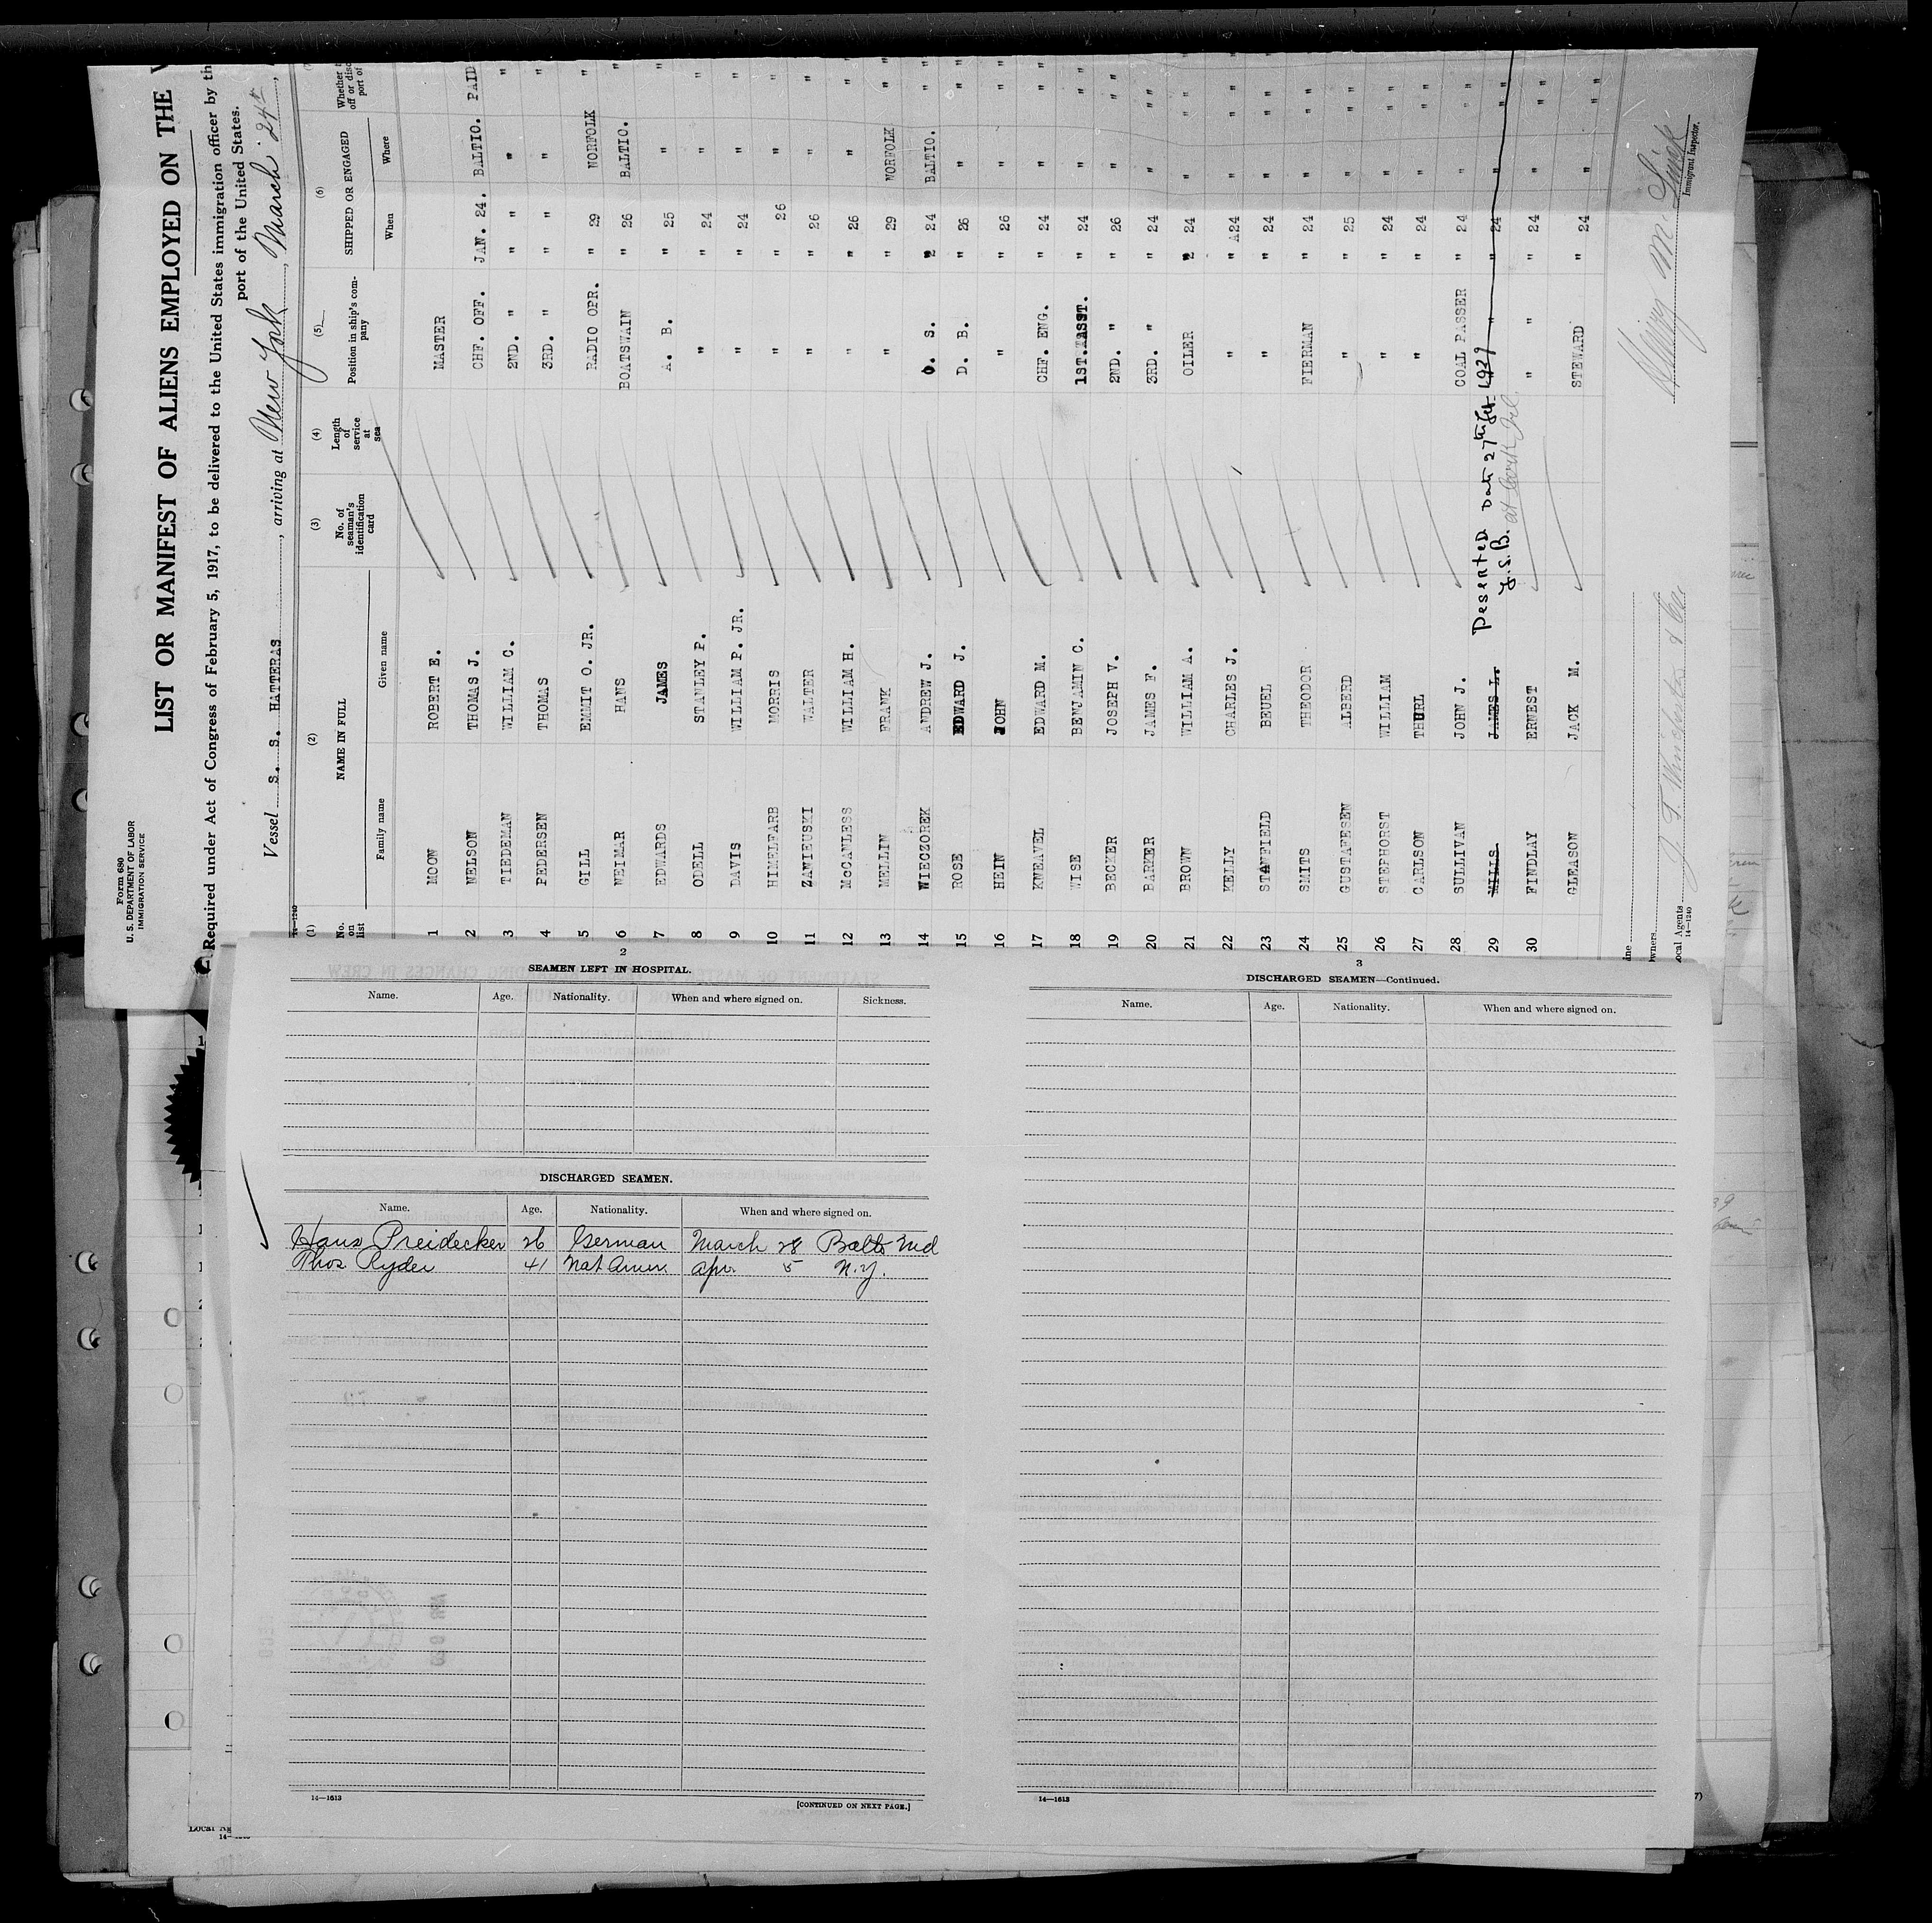 Form 680
U. S. DEPARTMENT OF LABOR
IMMIGRATION SERVICE
LIST OR MANIFEST OF ALIENS EMPLOYED ON THE
Required under Act of Congress of February 5, 1917, to be delivered to the United States immigration officer by th
port of the United States.
Vessel S. S. HATTERAS, arriving at New York, March 24th,
14—1240
(1) (2) (3) (4) (5) (6)
No. on list NAME IN FULL No. of seaman's identification card Length of service at sea Position in ship's company SHIPPED OR ENGAGED Whether off or disc port of
Family name Given name When Where
1 MOON ROBERT E. MASTER
2 NELSON THOMAS J. CHF. OFF. JAN. 24. BALTIO. PAID
3 TIEDEMAN WILLIAM C. 2ND. " " " " "
4 PEDERSEN THOMAS 3RD. " " " " "
5 GILL EMMIT O. JR. RADIO OPR. " 29 NORFOLK "
6 NEIMAR HANS BOATSWAIN " 26 BALTIO. "
7 EDWARDS JAMES A. B. " 25 " "
8 ODELL STANLEY P. " " 24 " "
9 DAVIS WILLIAM P. JR. " " 24 " "
10 HIMELFARB MORRIS " " 26 " "
11 ZANIEUSKI WALTER " " 26 " "
12 McCANLESS WILLIAM H. " " 26 " "
13 MELLIN FRANK " " 29 NORFOLK "
14 WIECZOREK ANDREW J. O. S. " 24 BALTIO. "
15 ROSE EDWARD J. D. B. " 26 " "
16 HEIN JOHN " " 26 " "
17 KNEAVEL EDWARD M. CHF. ENG. " 24 " "
18 WISE BENJAMIN C. 1ST. ASST. " 24 " "
19 BECKER JOSEPH V. 2ND. " " 26 " "
20 BARKER JAMES F. 3RD. " " 24 " "
21 BROWN WILLIAM A. OILER " 24 " "
22 KELLY CHARLES J. " " A24 " "
23 STANFIELD BEUEL " " 24 " "
24 SMITS THEODOR FIERMAN " 24 " "
25 GUSTAFESEN ALBERD " " 25 " "
26 STEPHORST WILLIAM " " 24 " "
27 CARLSON THURL " " 24 " "
28 SULLIVAN JOHN J. COAL PASSER " 24 " "
29 MILLS JAMES L. Deserted Date 27th Feb 1929 " " 24 " "
J.S.B. at Cork Irel.
30 FINDLAY ERNEST " " 24 " "
GLEASON JACK M. STEWARD " 24 " "
Line
Owners
Local Agents J. T. Winchester & Co.
14—1240
Immigrant Inspector.
2
SEAMEN LEFT IN HOSPITAL.
Name. Age. Nationality. When and where signed on. Sickness.
DISCHARGED SEAMEN.
Name. Age. Nationality. When and where signed on.
Hans Preidecker 26 German March 28 Balto Md
Thos Ryder 41 Nat Amer. Apr. 5 N.Y.
14—1613
[CONTINUED ON NEXT PAGE.]
3
DISCHARGED SEAMEN—Continued.
Name. Age. Nationality. When and where signed on.
14—1613